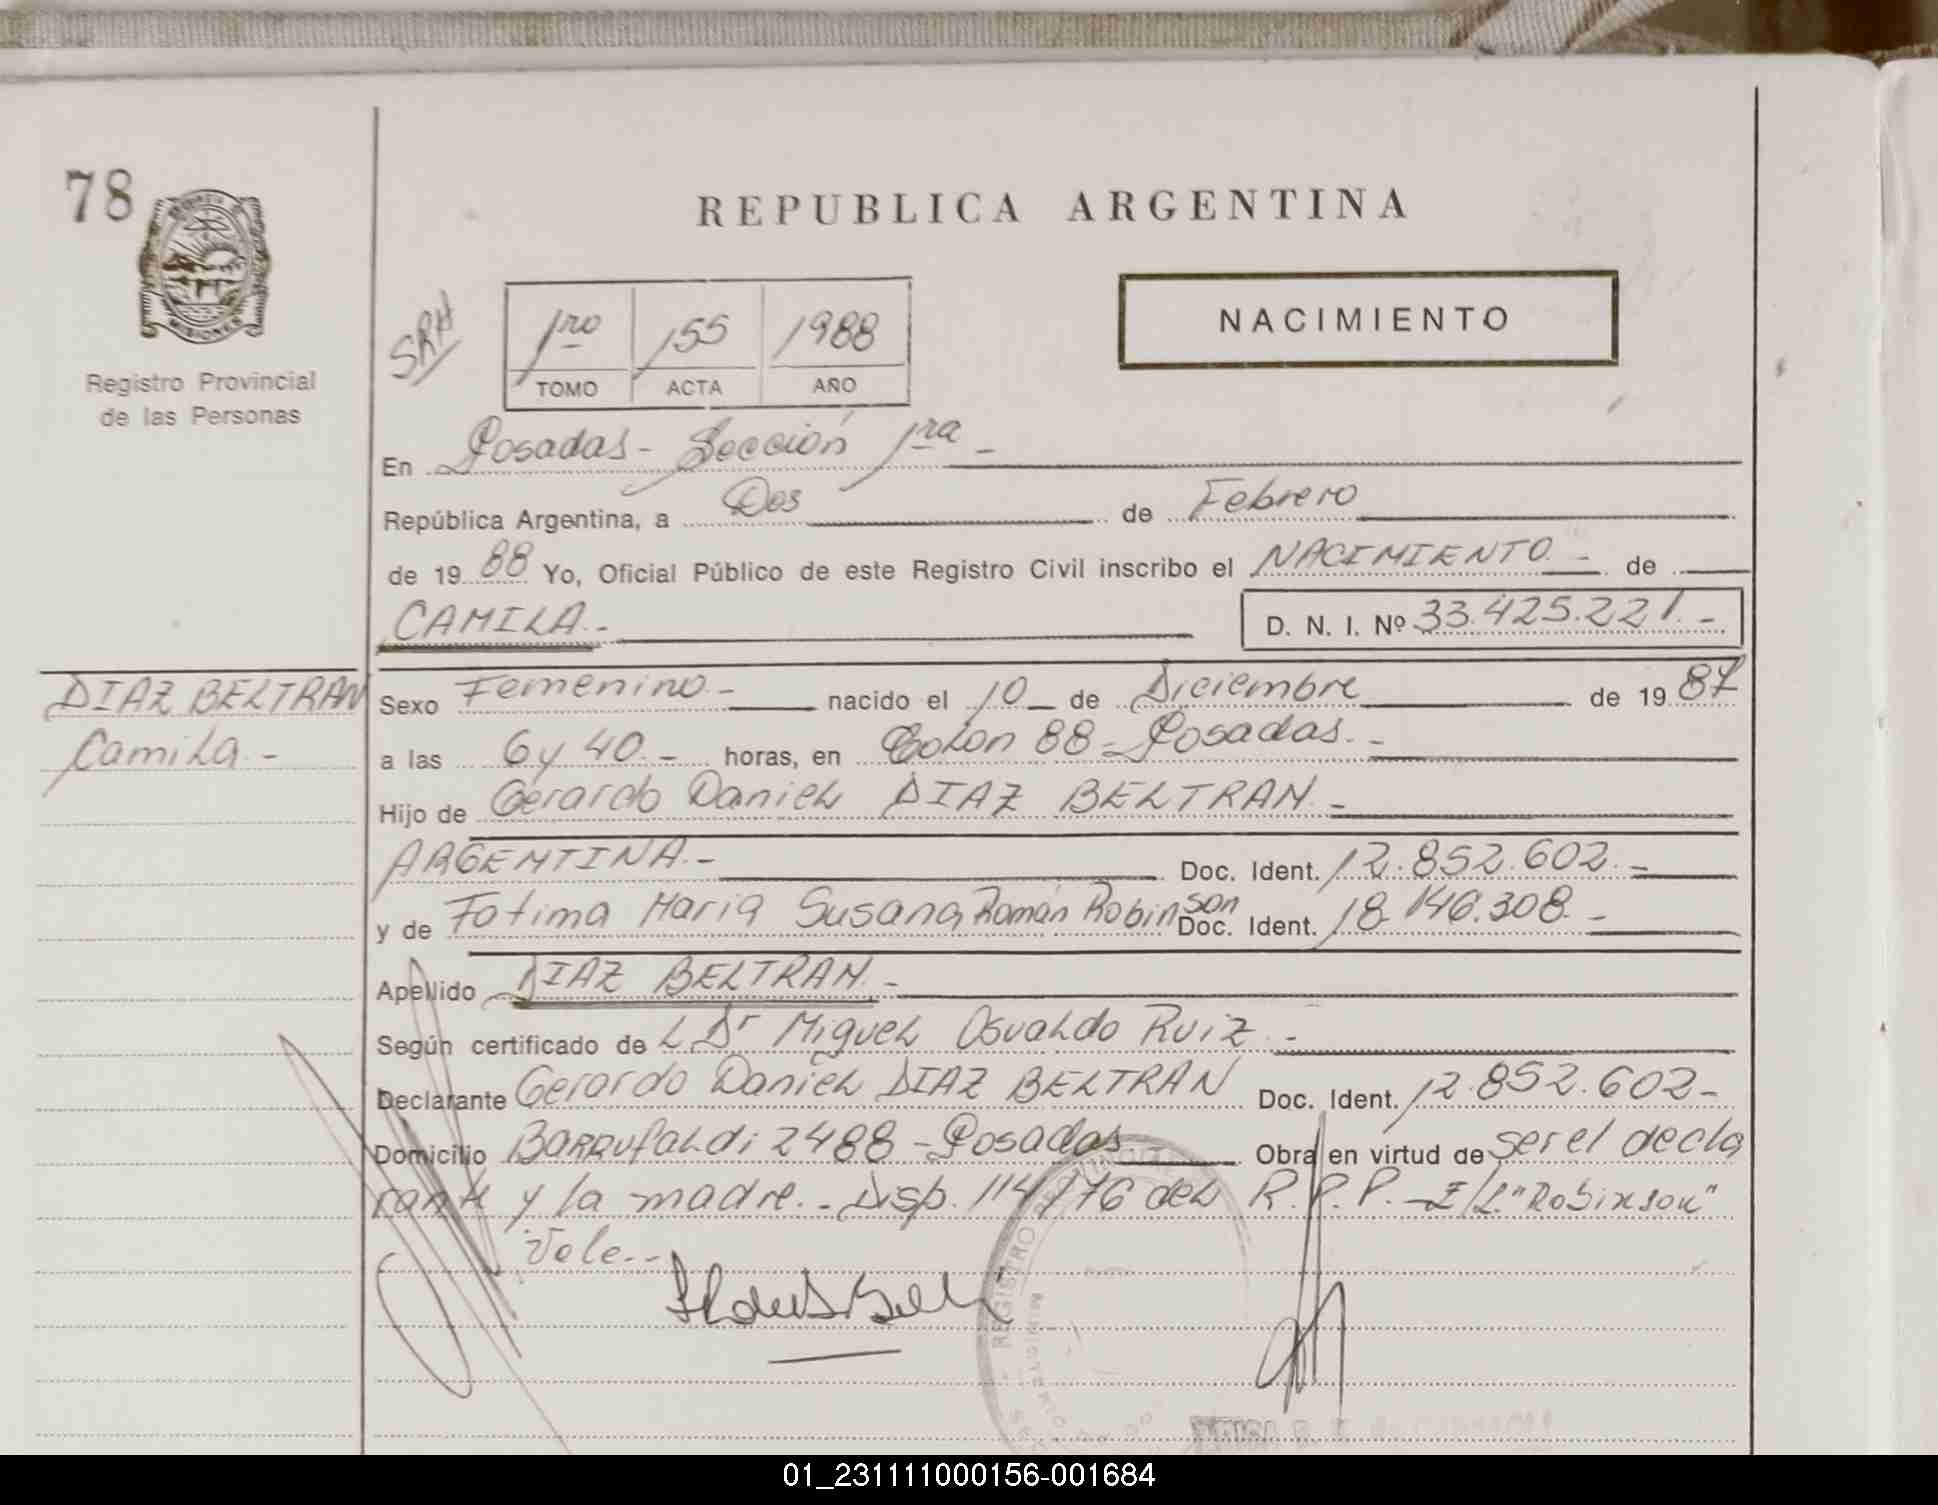 78
REPUBLICA ARGENTINA
MISIONES
Registro Provincial
de las Personas
SRH
1ro 155 1988
TOMO ACTA AÑO
NACIMIENTO
En Posadas - Sección 1ra -
República Argentina, a Dos de Febrero
de 1988 Yo, Oficial Público de este Registro Civil inscribo el NACIMIENTO - de
CAMILA.- D. N. I. Nº 33.425.221.-
DIAZ BELTRAN
Camila.-
Sexo Femenino.- nacido el 10 de Diciembre de 1987
a las 6 y 40.- horas, en Colon 88 - Posadas.-
Hijo de Gerardo Daniel DIAZ BELTRAN.-
ARGENTINA.- Doc. Ident. 12.852.602.-
y de Fatima Maria Susana Román Robinson Doc. Ident. 18.146.308.-
Apellido DIAZ BELTRAN.-
Según certificado de L Dr Miguel Osvaldo Ruiz.-
Declarante Gerardo Daniel DIAZ BELTRAN Doc. Ident. 12.852.602-
Domicilio Barrufaldi 2488 - Posadas Obra en virtud de ser el decla
rante y la madre.- Disp. 114/76 del R.P.P. - E/L."Robinson"
Vale.-
REGISTRO PROVINCIAL
01_231111000156-001684